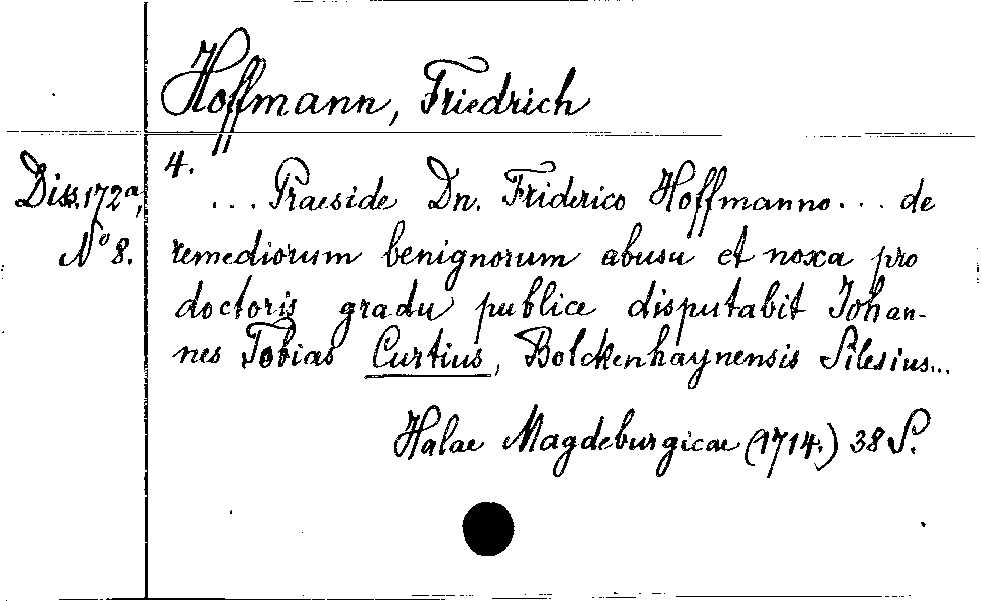 Hoffmann, Friedrich
Diss. 172a,
No 8.
4.
... Praeside Dn. Friderico Hoffmanno... de
remediorum benignorum abusu et noxa pro
doctoris gradu publice disputabit Johan-
nes Tobias Curtius, Bolckenhaynensis Silesius...
Halae Magdeburgicae (1714.) 38 S.